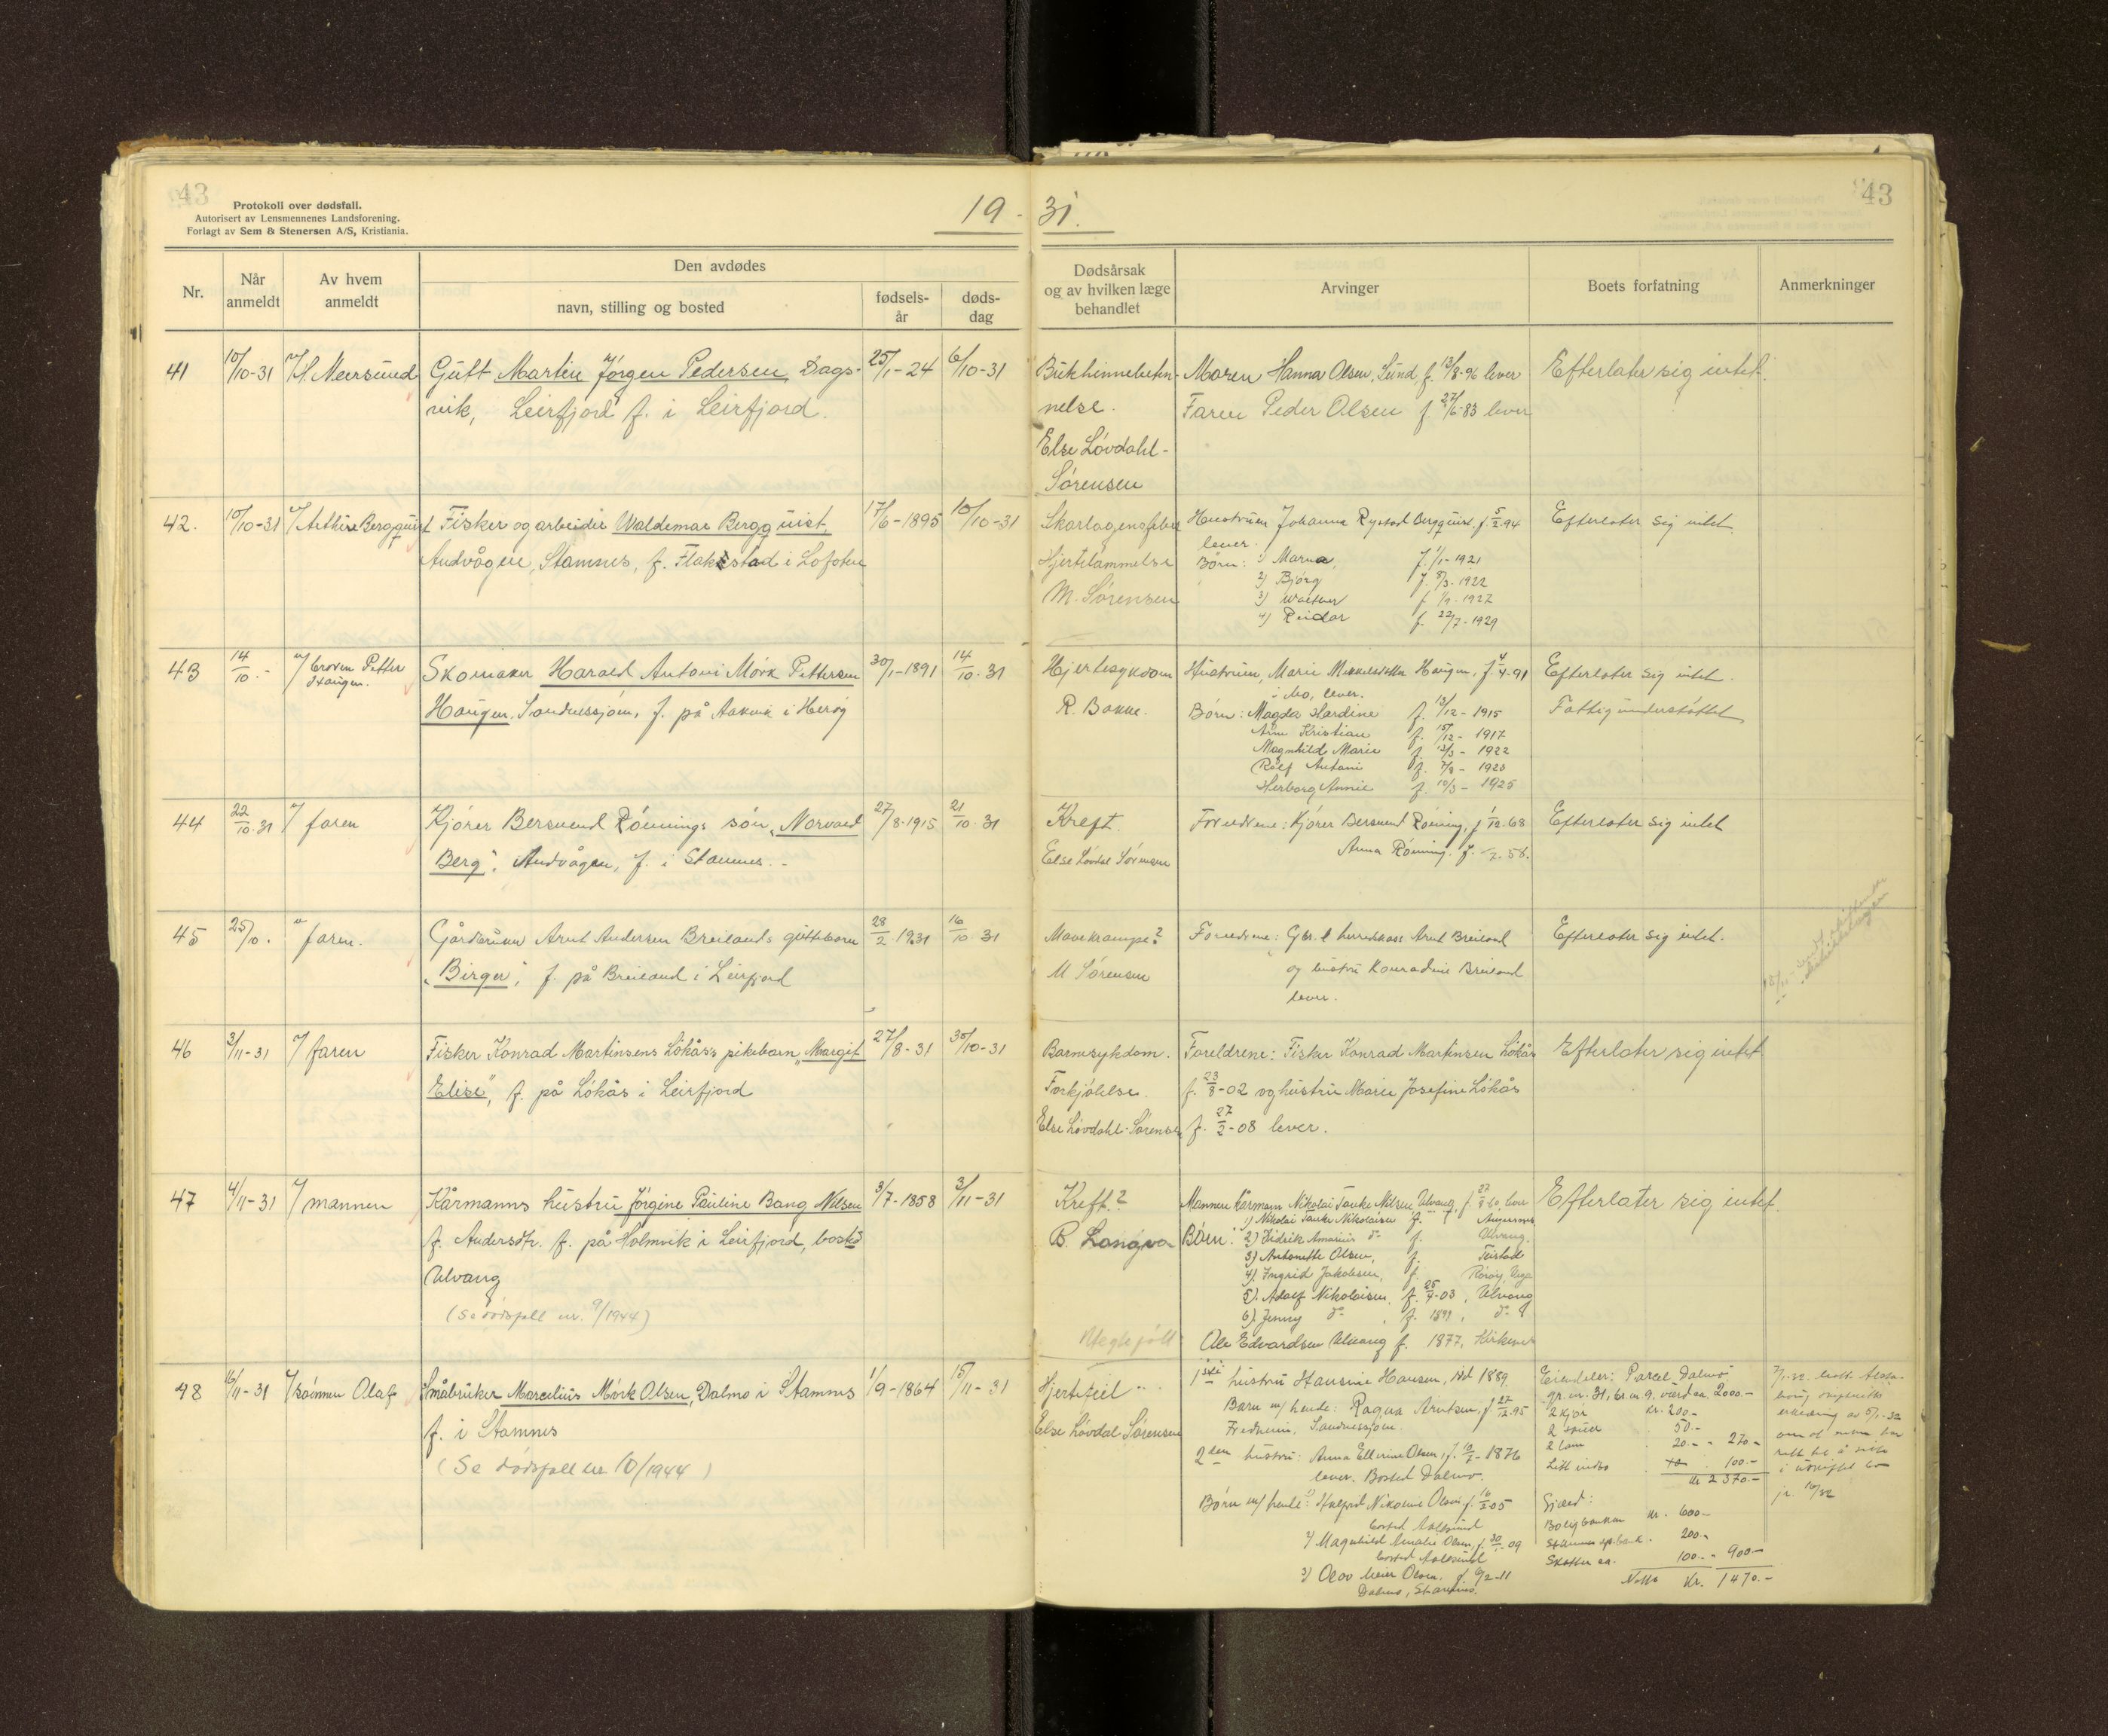 43
Protokoll over dødsfall.
Autorisert av Lensmennenes Landsforening.
Forlagt av Sem & Stenersen A/S, Kristiania.
19 - 31.
43
Nr.
Når anmeldt
Av hvem anmeldt
Den avdødes
navn, stilling og bosted
fødsels-år
døds-dag
Dødsårsak og av hvilken læge behandlet
Arvinger
Boets forfatning
Anmerkninger
41 10/10-31 v/ H. Meersund Gutt Martin Jørgen Pedersen, Dags- 25/1-24 6/10-31
vik, Leirfjord f. i Leirfjord.
Bukhinnebeten-
nelse.
Else Løvdahl-
Sørensen
Moren Hanna Olsen, Sund, f. 13/8-96 lever
Faren Peder Olsen f. 27/6-83 lever
Efterlater sig intet.
42. 10/10-31 v/ Arthur Bergquist Fisker og arbeider Waldemar Bergquist, 17/6-1895 10/10-31
Andvågen, Stamnes, f. Flakstad i Lofoten
Skarlagensfeber
Hjertelammelse
M. Sørensen
Hustruen Johanna Rystad Bergquist. f. 5/2.94
lever.
Børn: 1) Marna, f. 1/1-1921
2) Bjørg f. 8/3-1922
3) Walther f. 1/9-1927
4) Reidar f. 22/7-1929
Efterlater sig intet
43 14/10 - v/ broren Petter Haugen. Skomaker Harald Antoni Mørk Pettersen 30/1-1891 14/10.31
Haugen. Sandnessjøen, f. på Aakvik i Herøy
Hjertesykdom
R. Bakke.
Hustruen, Marie Mikkelsdatter Haugen, f. 4/4.91
i Mo, lever.
Børn: Magda Hardine f. 13/12-1915
Arne Kristian f. 15/12-1917
Magnhild Marie f. 13/3-1922
Rolf Antoni f. 7/8-1923
Herborg Annie f. 10/3-1925
Efterlater sig intet.
Fattigunderstøttet
44 22/10.31 v/ faren Kjører Bersvend Rønnings søn, "Norvald 27/8.1915 21/10.31
Berg", Andvågen, f. i Stamnes.
Kreft.
Else Løvdal Sørensen
Foreldrene: Kjører Bersvend Rønning, f. 1/12.68
Anna Rønning. f.
Efterlater sig intet
45 25/10. v/ faren. Gårdbruker Arnt Andersen Breilands guttebarn 28/2.1931 16/10.31
"Birger", f. på Breiland i Leirfjord
Mavekrampe?
M Sørensen
Foreldrene: Gbr. & herredskass Arnt Breiland
og hustru Konradine Breiland
lever.
Efterlater sig intet.
46 3/11-31 v/ faren Fisker Konrad Martinsens Løkås's pikebarn "Margit 27/8-31 30/10-31
Elise", f. på Løkås i Leirfjord
Barnesykdom.
Forkjølelse.
Else Løvdahl-Sørensen
Foreldrene: Fisker Konrad Martinsen Løkås
f. 23/8-02 og hustru Marie Josefine Løkås
f. 27/2-08 lever.
Efterlater sig intet
47 4/11-31 v/ mannen Kårmanns hustru Jørgine Pauline Bang Nilsen 3/7-1858 3/11-31
f. Andersdtr. f. på Holmvik i Leirfjord, bosted
Ulvang
(Se dødsfall nr. 9/1944)
Kreft?
B. Langva
Mannen kårmann Nikolai Tanke Nilsen Ulvang, lever
Børn: 1) Nikolai Tanke Nikolaisen f.
2) Fidrik Amarius do f. Ulvang.
3) Antonette Olsen, f. Teistad
4) Ingrid Jakobsen, f. Rørøy, Vega
5). Adolf Nikolaisen, f. 25/4-03, Ulvang
6) Jenny do , f. 1899, do
Ole Edvardsen Ulvang f. 1877, Kirkenes
Efterlater sig intet.
48 16/11-31 v/ sønnen Olaf Småbruker Marcelius Mørk Olsen, Dalmo i Stamnes 1/9-1864 15/11-31
f. i Stamnes
(Se dødsfall nr 10/1944)
Hjertefeil
Else Løvdal Sørensen
1ste hustru Hansine Hansen, død 1889.
Barn m/ hende: Ragna Arntsen, f. 27/12.95
Fredheim, Sandnessjøen.
2den hustru: Anna Ellerine Olsen, f. 10/7-1876
lever. Bosted Dalmo.
Børn m/ hende: 1) Halfrid Nikoline Olsen, f. 16/2 05
bosted Aalesund
2) Magnhild Amalie Olsen, f. 09
bosted Aalesund
3) Olav Meier Olsen. f. 9/2-11
Dalmo, Stamnes.
Eiendeler: Parcel Dalmo
gr.nr. 31, br.nr. 9, værd ca. 2000.-
2 kjør kr. 200.-
2 sauer 50.-
2 lam 20.- - 270.-
Litt indbo 100.-
kr 2370.-
Gjæld:
Boligbanken kr. 600.-
Stamnes sp.bank. 200.-
Skatter ca. 100.- - 900.-
Netto Kr. 1470.-